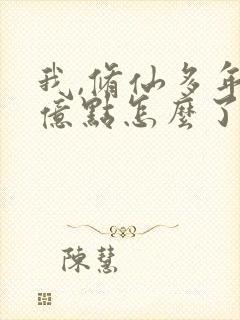 我,脩仙多年
億點怎麼了
陳慧